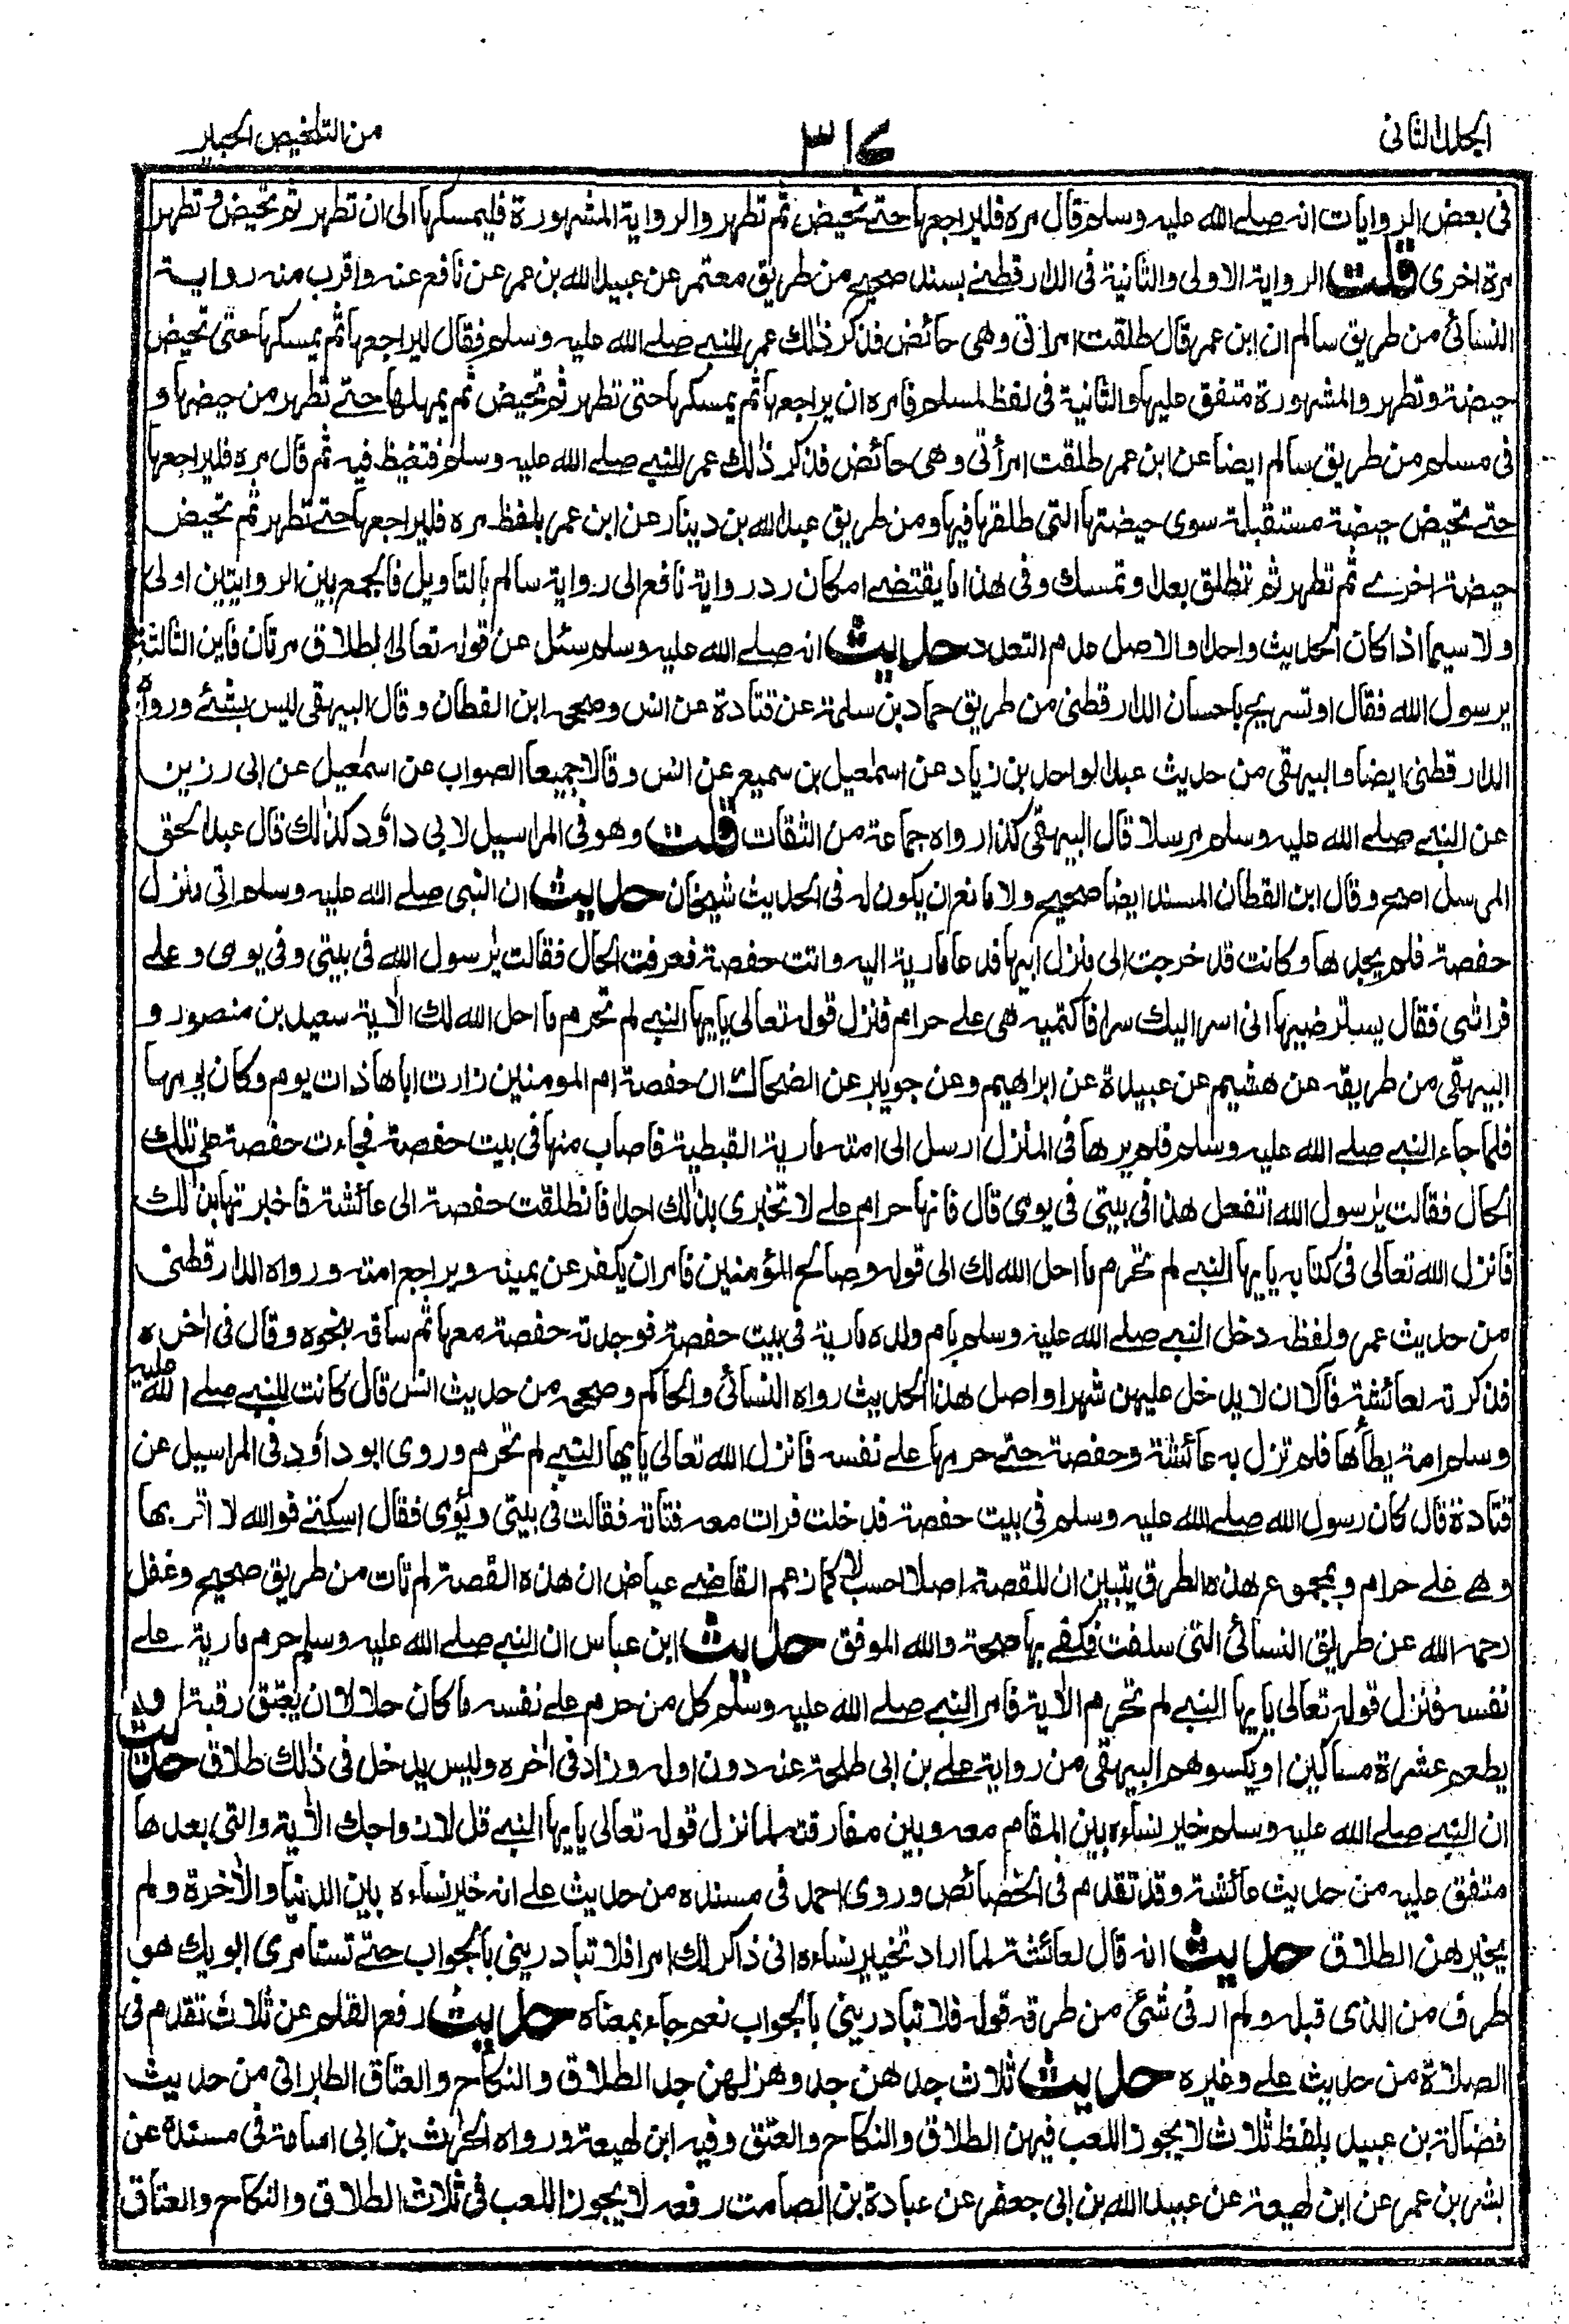 الجلد الثانى
٣١٧
من التلخيص الحبير
فى بعض الروايات انه صلے الله عليه وسلم قال مره فليراجعها حتے تحيض ثم تطهر والرواية المشهورة فليمسكها الى ان تطهر ثم تحيض وتطهر
مرة اخرى قلت الرواية الاولى والثانية فى الدارقطنے بسند صحيح من طريق معتمر عن عبيد الله بن عمر عن نافع عنه واقرب منه رواية
النسائى من طريق سالم ان ابن عمر قال طلقت امراتى وهى حائض فذكر ذلك عمر للنبے صلے الله عليه وسلم فقال ليراجعها ثم يمسكها حتى تحيض
حيضة وتطهر والمشهورة متفق عليها والثانية فى لفظ لمسلم فامره ان يراجعها ثم يمسكها حتى تطهر ثم تحيض ثم يمهلها حتے تطهر من حيضها و
فى مسلم من طريق سالم ايضا عن ابن عمر طلقت امرأتى وهى حائض فذكر ذلك عمر للنبے صلے الله عليه وسلم فتغيظ فيه ثم قال مره فليراجعها
حتے تحيض حيضة مستقبلة سوى حيضتها التى طلقها فيها ومن طريق عبد الله بن دينار عن ابن عمر بلفظ مره فليراجعها حتے تطهر ثم تحيض
حيضة اخرے ثم تطهر ثم تطلق بعد او تمسك وفى هذا ما يقتضے امكان رد رواية نافع الى رواية سالم بالتاويل فالجمع بين الروايتين اولى
ولا سيما اذا كان الحديث واحدا والاصل عدم التعدد حديث انه صلے الله عليه وسلم سئل عن قوله تعالى الطلاق مرتان فاين الثالثة
يرسول الله فقال او تسريح باحسان الدارقطنى من طريق حماد بن سلمة عن قتادة عن انس وصححه ابن القطان وقال البيهقى ليس بشئے ورواه
الدارقطنى ايضا والبيهقى من حديث عبد الواحد بن زياد عن اسمٰعيل بن سميع عن انس وقالا جميعا الصواب عن اسمٰعيل عن ابى رزين
عن النبے صلے الله عليه وسلم مرسلا قال البيهقى كذا رواه جماعة من الثقات قلت وهو فى المراسيل لابى داؤد كذلك قال عبد الحق
المرسل اصح وقال ابن القطان المسند ايضا صحيح ولا مانع ان يكون له فى الحديث شيخان حديث ان النبى صلے الله عليه وسلم اتى منزل
حفصة فلم يجدها وكانت قد خرجت الى منزل ابيها فدعا مارية اليه واتت حفصة فعرفت الحال فقالت يٰرسول الله فى بيتى وفى يومى وعلے
فراشى فقال يسترضيها انى اسر اليك سرا فاكتميه هى علے حرام فنزل قوله تعالى يايها النبے لم تحرم ما احل الله لك الآية سعيد بن منصور و
البيهقى من طريقه عن هشيم عن عبيدة عن ابراهيم وعن جويبر عن الضحاك ان حفصة ام المومنين زارت اباها ذات يوم وكان يومها
فلما جاء النبے صلے الله عليه وسلم فلم يرها فى المنزل ارسل الى امته مارية القبطية فاصاب منها فى بيت حفصة فجاءت حفصة على تلك
الحال فقالت يٰرسول الله اتفعل هذا فى بيتى فى يومى قال فانها حرام علے لا تخبرى بذلك احدا فانطلقت حفصة الى عائشة فاخبرتها بذلك
فانزل الله تعالى فى كتابه يايها النبے لم تحرم ما احل الله لك الى قوله وصالح المؤمنين فامر ان يكفر عن يمينه ويراجع امته ورواه الدارقطنى
من حديث عمر ولفظه دخل النبے صلے الله عليه وسلم بام ولده مارية فى بيت حفصة فوجدته حفصة معها ثم ساقه بنحوه وقال فى اٰخره
فذكرته لعائشة فآلا ان لا يدخل عليهن شهرا واصل هذا الحديث رواه النسائى والحاكم وصححه من حديث انس قال كانت للنبے صلے الله عليه
وسلم امة يطأها فلم تزل به عائشة وحفصة حتے حرمها علے نفسه فانزل الله تعالى يايها النبے لم تحرم وروى ابو داؤد فى المراسيل عن
قتادة قال كان رسول الله صلے الله عليه وسلم فى بيت حفصة فدخلت فرات معه فتاته فقالت فى بيتى ويومى فقال اسكتے فوالله لا اقربها
وهے علے حرام وبمجموع هذه الطرق يتبين ان للقصة اصلا احسب لا كما زعم القاضے عياض ان هذه القصة لم تات من طريق صحيح وغفل
رحمه الله عن طريق النسائى التى سلفت فكفے بها صحة والله الموفق حديث ابن عباس ان النبے صلے الله عليه وسلم حرم مارية علے
نفسه فنزل قوله تعالى يايها النبے لم تحرم الاية فامر النبے صلے الله عليه وسلم كل من حرم علے نفسه ما كان حلالا ان يعتق رقبة او
يطعم عشرة مساكين او يكسوهم البيهقى من رواية علے بن ابى طلحة عنه دون اوله وزاد فى اٰخره وليس يدخل فى ذٰلك طلاق حديث
ان النبے صلے الله عليه وسلم خير نساءه بين المقام معه وبين مفارقته لما نزل قوله تعالى يايها النبے قل لازواجك الاٰية والتى بعدها
متفق عليه من حديث عائشة وقد تقدم فى الخصائص وروى احمد فى مسنده من حديث علے انه خير نساءه بين الدنيا والاٰخرة ولم
يخيرهن الطلاق حديث انه قال لعائشة لما اراد تخيير نساءه انى ذاكر لك امرا فلا تبادرينى بالجواب حتے تستامرى ابويك هو
طرف من الذى قبله ولم ار فى شئ من طرقه قوله فلا تبادرينى بالجواب نعم جاء بمعناه حديث رفع القلم عن ثلاث تقدم فى
الصلاة من حديث علے وغيره حديث ثلاث جدهن جد وهزلهن جد الطلاق والنكاح والعتاق الطبرانى من حديث
فضالة بن عبيد بلفظ ثلاث لا يجوز اللعب فيهن الطلاق والنكاح والعتق وفيه ابن لهيعة ورواه الحٰرث بن ابى اسامة فى مسنده عن
بشر بن عمر عن ابن لهيعة عن عبيد الله بن ابى جعفر عن عبادة بن الصامت رفعه لا يجوز اللعب فى ثلاث الطلاق والنكاح والعتاق